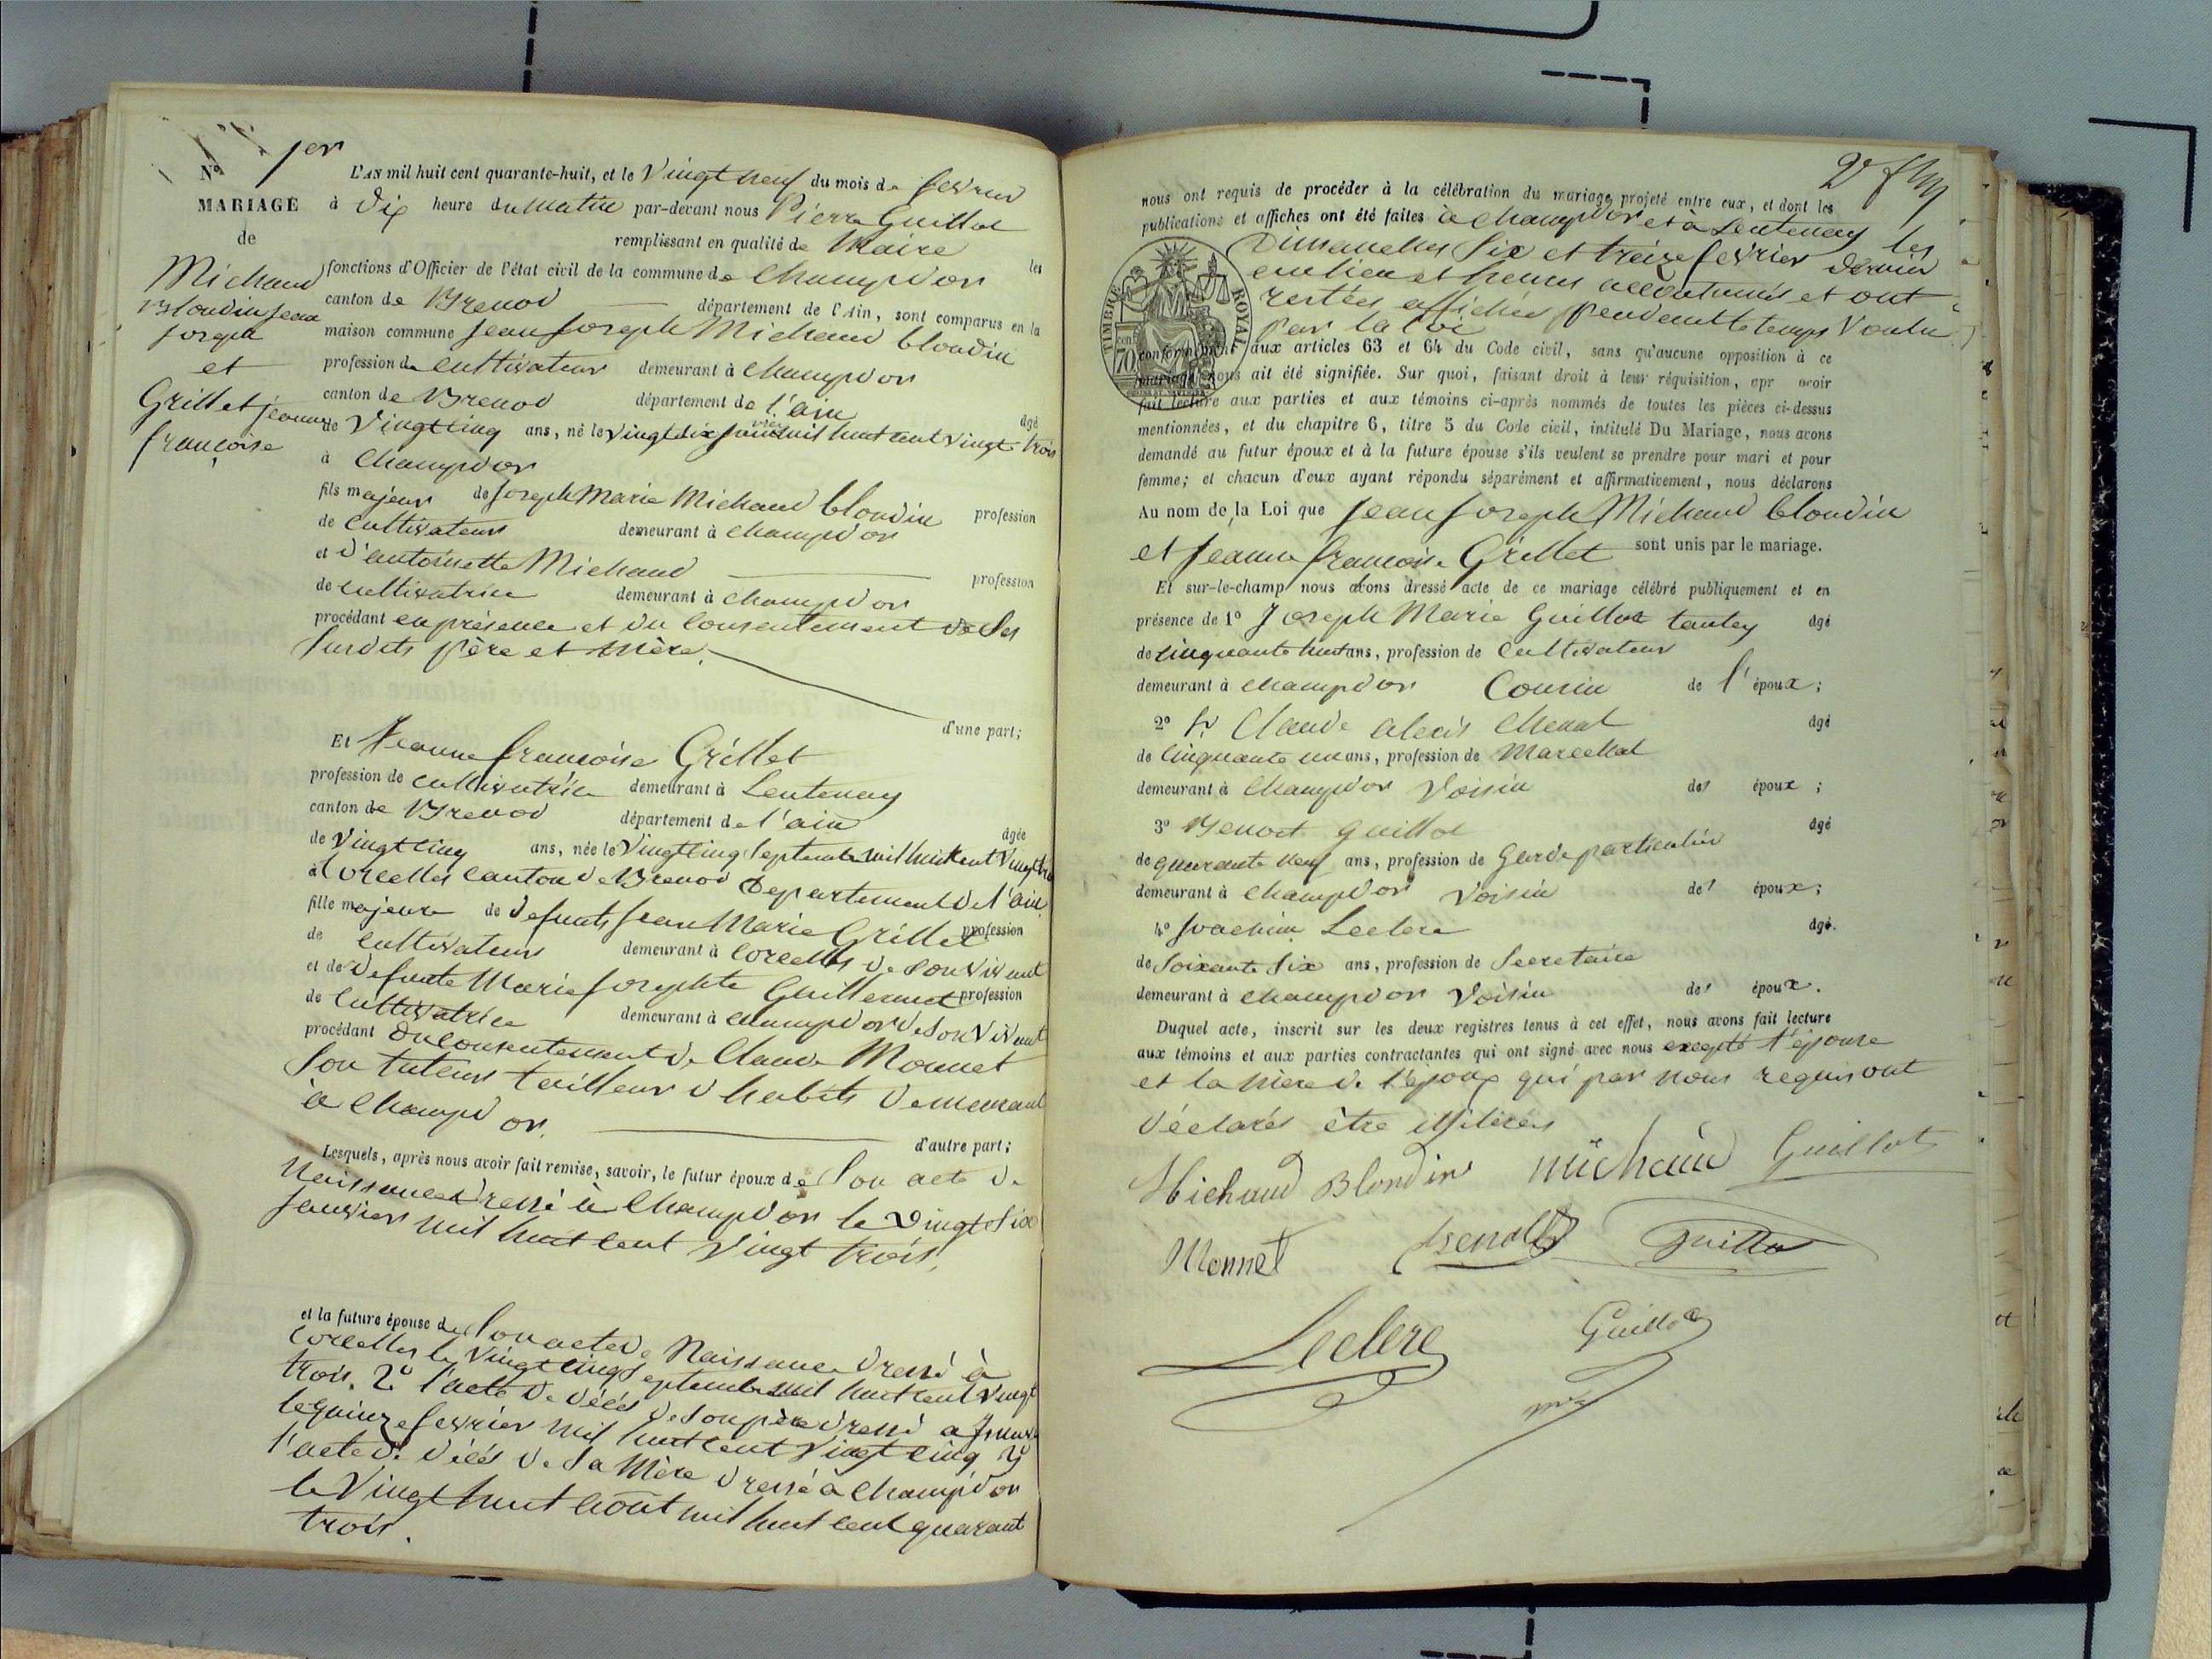 No 1er
MARIAGE
de
Michaud
Blondin jean
joseph
et
Grillet jeanne
françoise
L'AN mil huit cent quarante-huit, et le Vingt neuf du mois de fevrier
à dix heure du matin par-devant nous Pierre Guillot
remplissant en qualité de Maire les
fonctions d'Officier de l'état civil de la commune de Champdor
canton de Brenod département de l'Ain, sont comparus en la
maison commune jean joseph Michaud blondin
profession de cultivateur demeurant à champdor
canton de Brenod département de l'ain âgé
de Vingt cinq ans, né le vingt six janvier mil huit cent vingt trois
à Champdor
fils majeur de joseph Marie Michaud blondin profession
de cultivateur demeurant à champdor
et d'antoinette Michaud profession
de cultivatrice demeurant à champdor
procédant en présence et du consentement de ses
susdits père et mère.
d'une part;
Et Jeanne françoise Grillet
profession de cultivatrice demeurant à Lentenay
canton de Brenod département de l'ain âgée
de Vingt cinq ans, née le Vingt cinq septembre mil huit cent vingt trois
à Corcelles canton de Brenod Departement de l'ain
fille majeure de defunts jean Marie Grillet profession
de cultivateur demeurant à corcelles de son vivant
et de defunte Marie josephte Guillermet profession
de Cultivatrice demeurant à champdor de son vivant
procédant du consentement de Claude Monnet
son tuteur tailleur d'habits demeurant
à Champdor.
d'autre part;
Lesquels, après nous avoir fait remise, savoir, le futur époux de son acte de
Naissance dressé à Champdor le vingt six
janvier mil huit cent vingt trois,
et la future épouse de son acte de Naissance dressé à
corcelles le Vingt cinq septembre mil huit cent vingt
trois. 2º l'acte de décés de son père dressé a
le quinze fevrier mil huit cent vingt cinq 3º
l'acte de décés de sa Mère dressé à Champdor
le Vingt huit août mil huit cent quarant
trois.
2e
nous ont requis de procéder à la célébration du mariage projeté entre eux, et dont les
publications et affiches ont été faites à champdor et à Lentenay les
Dimanches six et treize fevrier dernier
au lieu et heures accoutumés et ont
restées affichées pendant le temps Voulu
par la loi
TIMBRE ROYAL
70 cent
conformément aux articles 63 et 64 du Code civil, sans qu'aucune opposition à ce
mariage nous ait été signifiée. Sur quoi, faisant droit à leur réquisition, apr avoir
fait lecture aux parties et aux témoins ci-après nommés de toutes les pièces ci-dessus
mentionnées, et du chapitre 6, titre 5 du Code civil, intitulé Du Mariage, nous avons
demandé au futur époux et à la future épouse s'ils veulent se prendre pour mari et pour
femme; et chacun d'eux ayant répondu séparément et affirmativement, nous déclarons
Au nom de la Loi que jean joseph Michaud blondin
et jeanne françoise Grillet sont unis par le mariage.
Et sur-le-champ nous avons dressé acte de ce mariage célébré publiquement et en
présence de 1º Joseph Marie Guillot tantey âgé
de cinquante huit ans, profession de cultivateur
demeurant à champdor Cousin de l'époux;
2º Sr Claude alexis Chenal âgé
de Cinquante un ans, profession de Marechal
demeurant à Champdor Voisin des époux;
3º Benoit Guillot âgé
de quarante neuf ans, profession de Garde particulier
demeurant à Champdor voisin des époux;
4º Joachim Leclere âgé.
de Soixante six ans, profession de Secretaire
demeurant à champdor Voisin des époux.
Duquel acte, inscrit sur les deux registres tenus à cet effet, nous avons fait lecture
aux témoins et aux parties contractantes qui ont signé avec nous excepté l'épouse
et la Mère de l'époux qui par nous requis ont
déclarés être illiterés
Michaud Blondin michaud Guillot
Monnet Guillot
Leclere Guillot